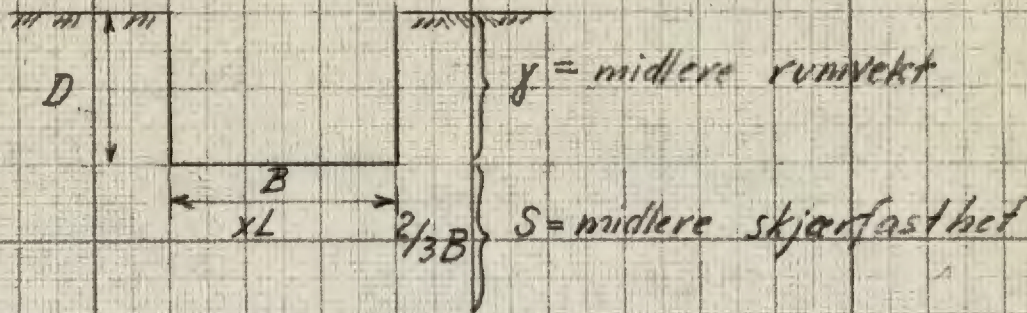 D
γ = midlere rumvekt
B
xL
2/3B
S = midlere skjærfasthet